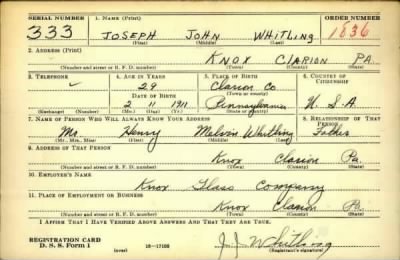 SERIAL NUMBER 1. NAME (Print) ORDER NUMBER
333 JOSEPH JOHN WHITLING 1836
(First) (Middle) (Last)
2. ADDRESS (Print)
KNOX CLARION PA.
(Number and street or R. F. D. number) (Town) (County) (State)
3. TELEPHONE 4. AGE IN YEARS 5. PLACE OF BIRTH 6. COUNTRY OF CITIZENSHIP
29 Clarion Co.
DATE OF BIRTH (Town or county)
2 11 1911 Pennsylvania U.S.A
(Exchange) (Number) (Mo.) (Day) (Yr.) (State or country)
7. NAME OF PERSON WHO WILL ALWAYS KNOW YOUR ADDRESS 8. RELATIONSHIP OF THAT PERSON
Mr. Henry Melvin Whitling Father
(Mr., Mrs., Miss) (First) (Middle) (Last)
9. ADDRESS OF THAT PERSON
Knox Clarion Pa.
(Number and street or R. F. D. number) (Town) (County) (State)
10. EMPLOYER'S NAME
Knox Glass Company
11. PLACE OF EMPLOYMENT OR BUSINESS
Knox Clarion Pa.
(Number and street or R. F. D. number) (Town) (County) (State)
I AFFIRM THAT I HAVE VERIFIED ABOVE ANSWERS AND THAT THEY ARE TRUE.
REGISTRATION CARD
D. S. S. Form 1 (over) 16-17105 J J Whitling
(Registrant's signature)